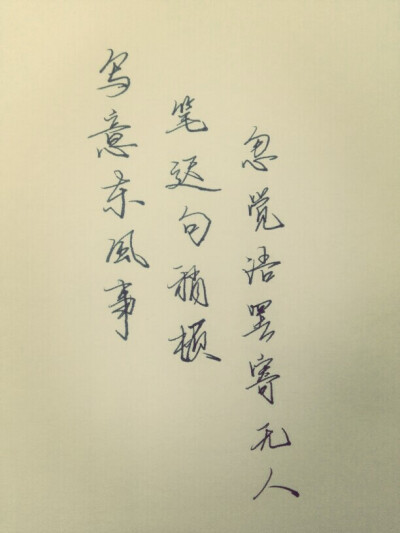 写意东风事
笔迟句稍顿
忽觉语罢寄无人